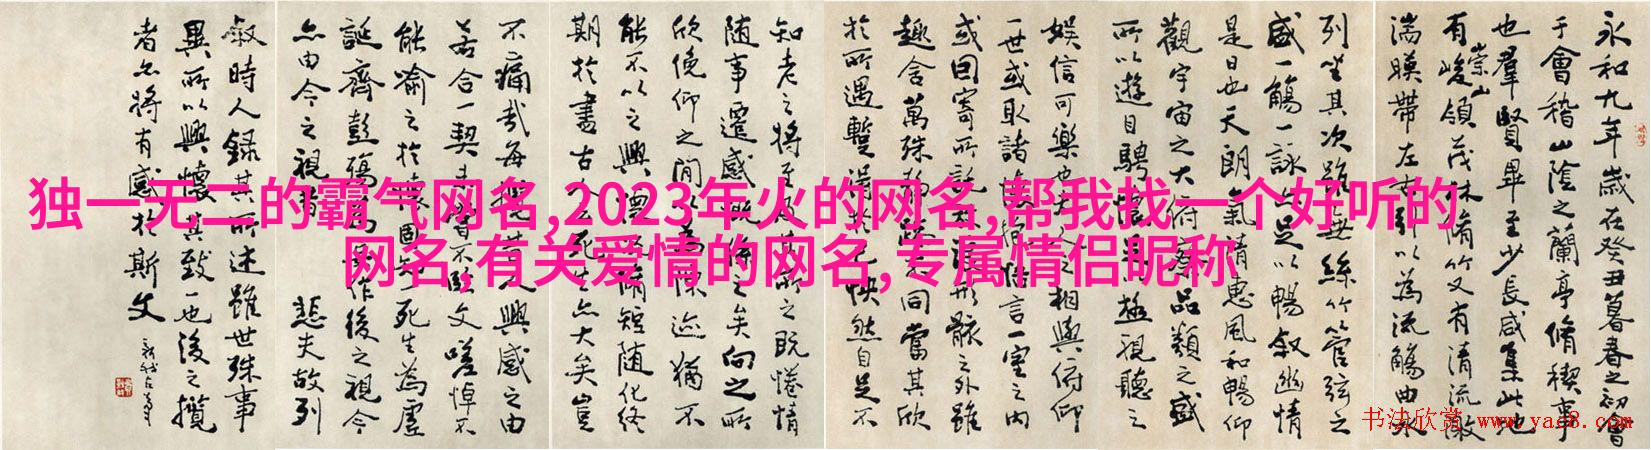 独一无二的霸气网名,2023年火的网名,帮我找一个好听的
网名,有关爱情的网名,专属情侣昵称
永和九年歲在癸丑暮春之初會
于會稽山陰之蘭亭脩稧事
也羣賢畢至少長咸集此地
有崇山峻領茂林脩竹又有清流激
湍暎帶左右引以為流觴曲水
列坐其次雖無絲竹管弦之
盛一觴一詠亦足以暢敘幽情
是日也天朗氣清惠風和暢仰
觀宇宙之大俯察品類之盛
所以遊目騁懷足以極視聽之
娛信可樂也夫人之相與俯仰
一世或取諸懷抱悟言一室之內
或因寄所託放浪形骸之外雖
趣舍萬殊靜躁不同當其欣
於所遇蹔得於己怏然自足不
知老之將至及其所之既惓情
隨事遷感慨係之矣向之所
欣俛仰之間以為陳迹猶不
能不以之興懷況脩短隨化終
期於盡古人云死生亦大矣豈
不痛哉每攬昔人興感之由
若合一契未嘗不臨文嗟悼不
能喻之於懷固知一死生為虛
誕齊彭殤為妄作後之視今
亦由今之視昔悲夫故列
敘時人錄其所述雖世殊事
異所以興懷其致一也後之攬
者亦將有感於斯文
书法欣赏 www.yac8.com